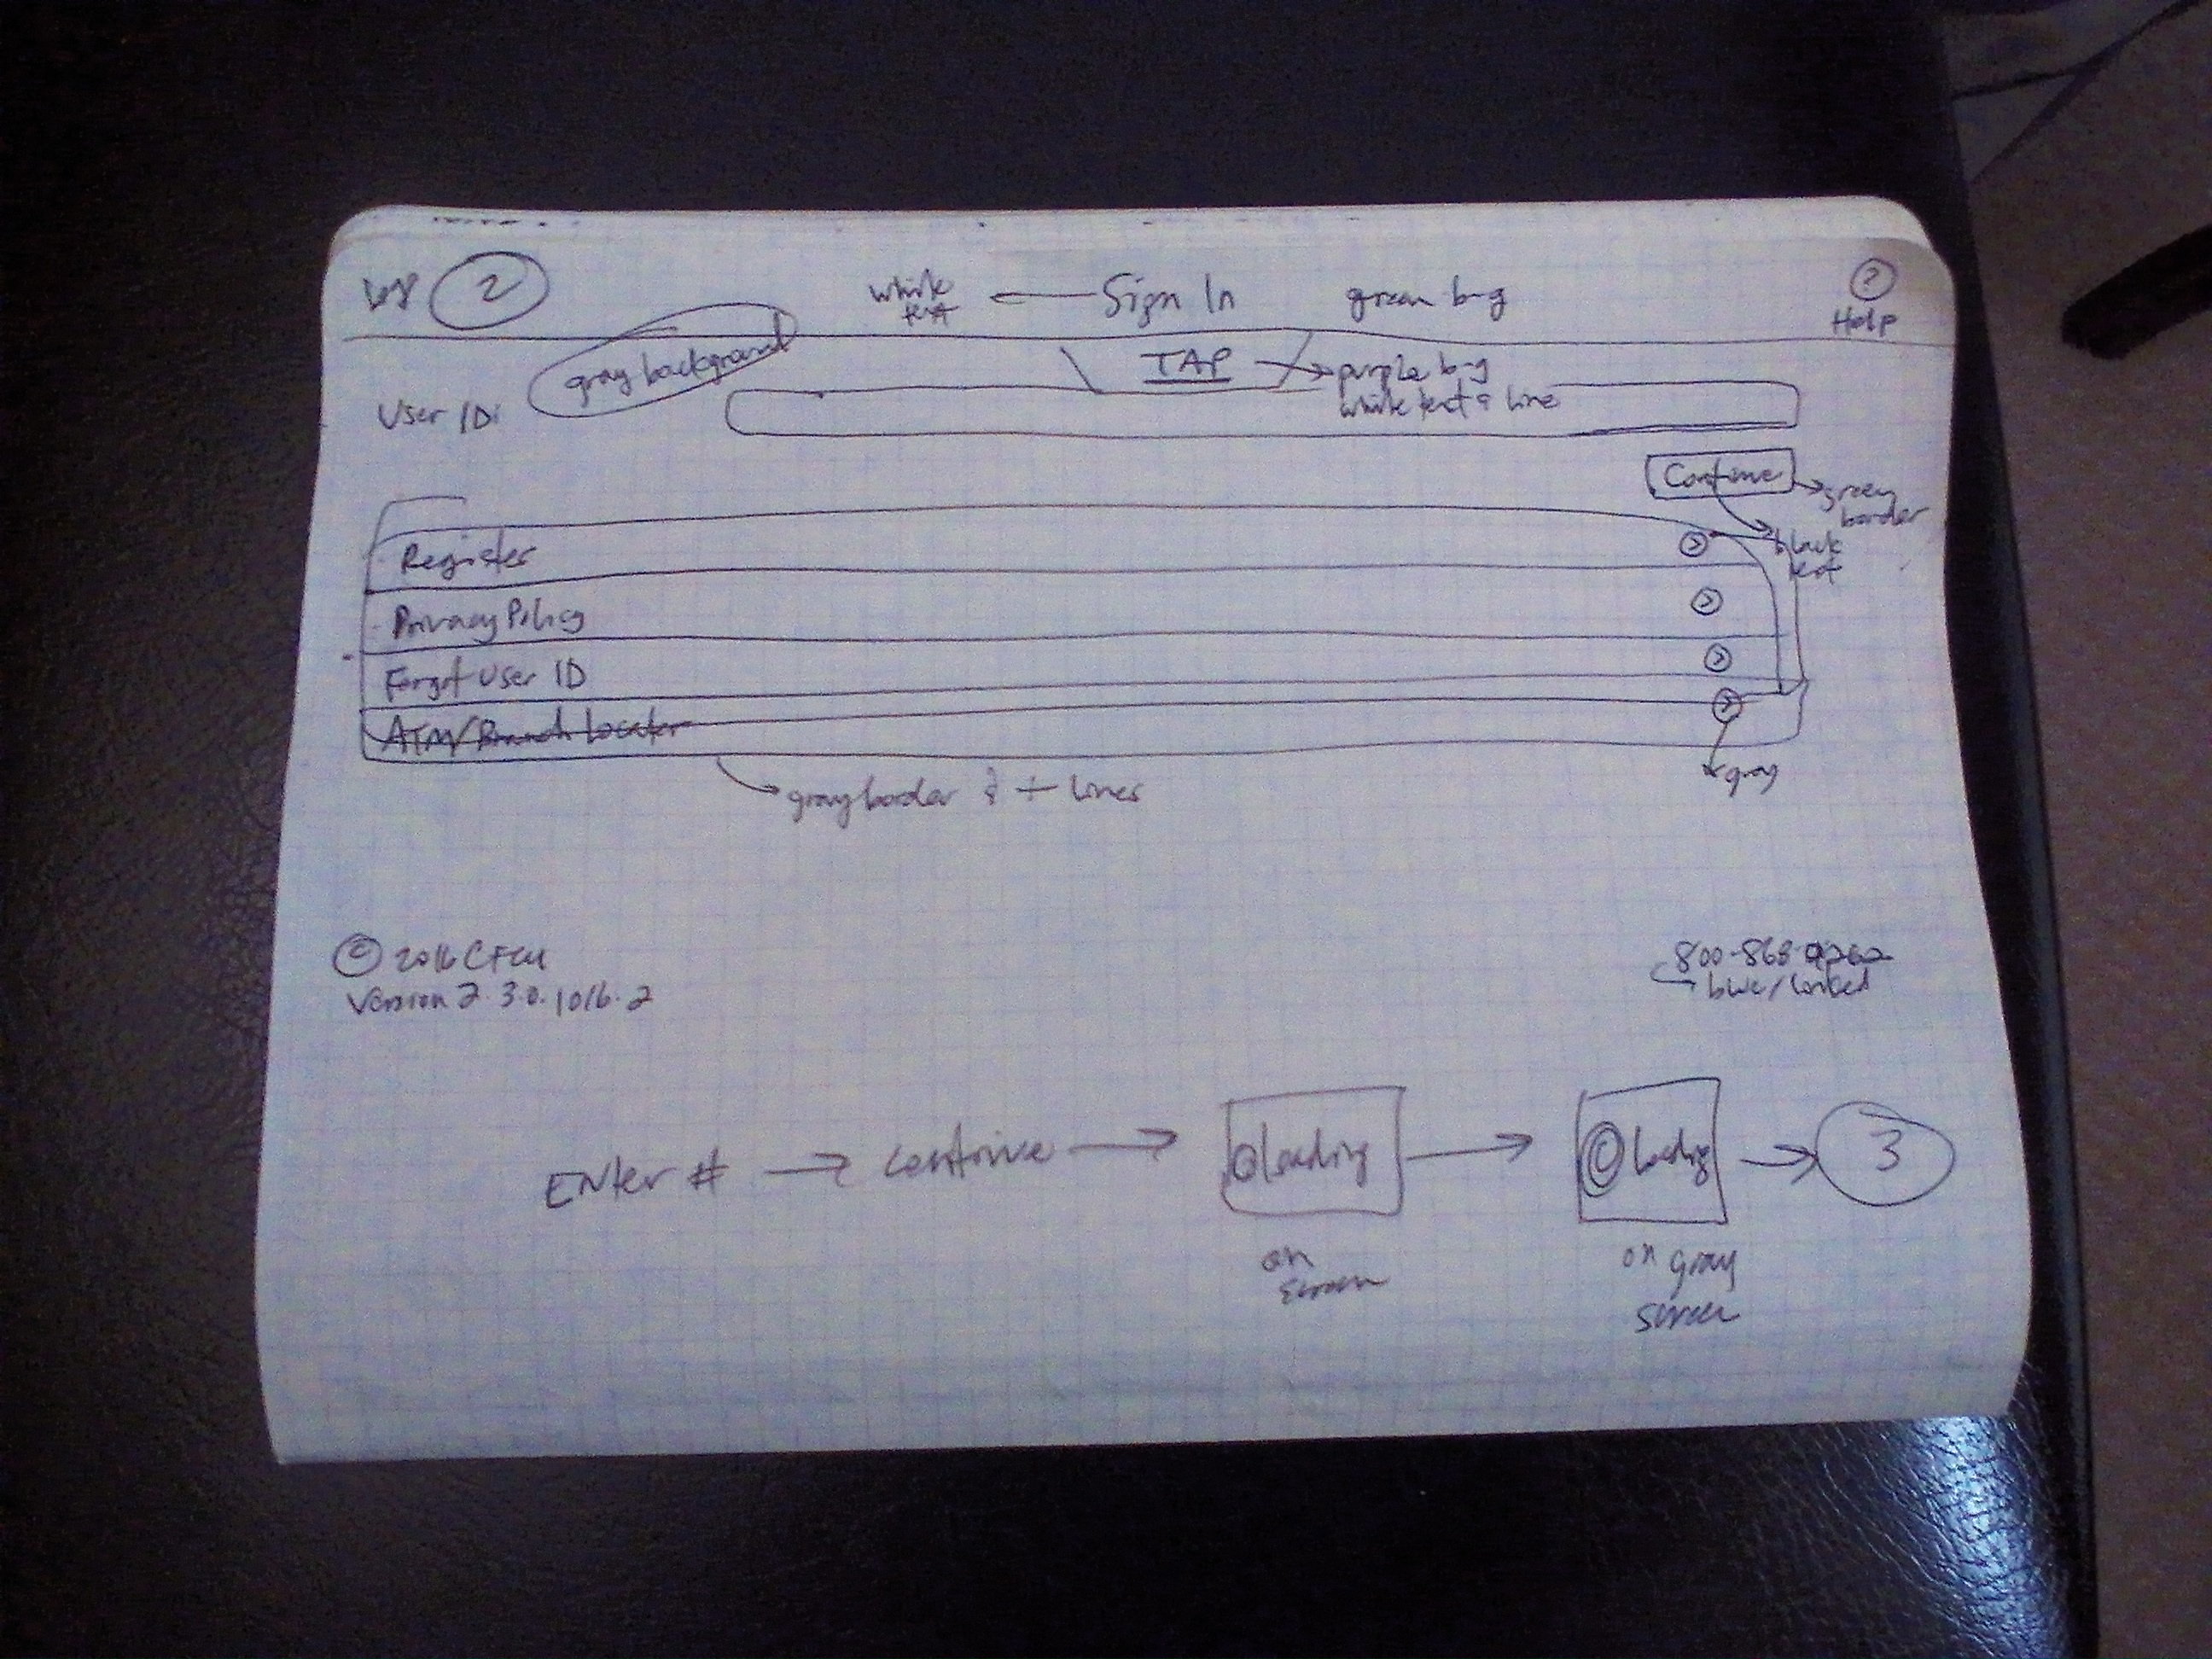 2
white text ← Sign In green b-g
? Help
gray background
TAP → purple b-g
white text & line
User ID:
Continue → green border
black text
Register
Privacy Policy
Forgot User ID
ATM/Branch Locator
gray
gray border & + lines
© 2016 CFCU
800-868-
Version 2.3.0.1016.2
Enter # → continue → loading → loading → 3
on screen
on gray screen